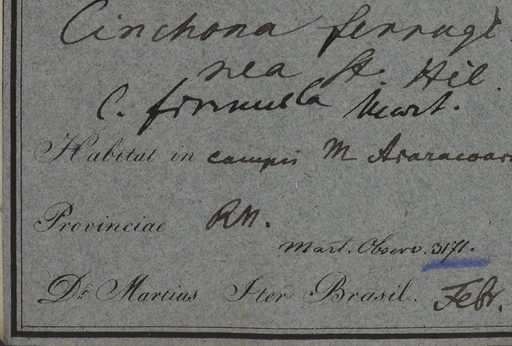 Cinchona ferrugi
nea St. Hil.
C. firmula Mart.
Habitat in campis M Araracoar
Provinciae RN.
Mart. Observ. 3171.
Dr. Martius Iter Brasil. Febr.